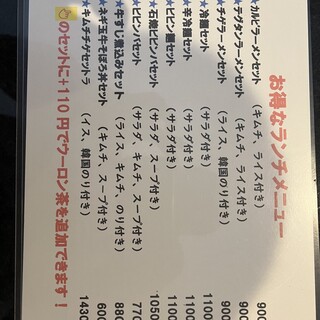 お得なランチメニュー
★カルビラーメンセット（キムチ、ライス付き） 900
★テグタンラーメンセット（キムチ、ライス付き） 900
★チゲラーメンセット（ライス、韓国のり付き） 900
★冷麺セット（サラダ付き） 1100
★辛冷麺セット（サラダ付き） 1100
★ビビン麺セット（サラダ付き） 1100
★石焼ビビンバセット（サラダ、スープ付き） 1050
★ビビンバセット（サラダ、キムチ、スープ付き） 770
★牛すじ煮込みセット（ライス、キムチ、のり付き） 880
★ネギ玉牛そぼろ丼セット（キムチ、スープ付き） 600
★キムチチゲセットラ（イス、韓国のり付き） 1430
のセットに+110円でウーロン茶を追加できます！